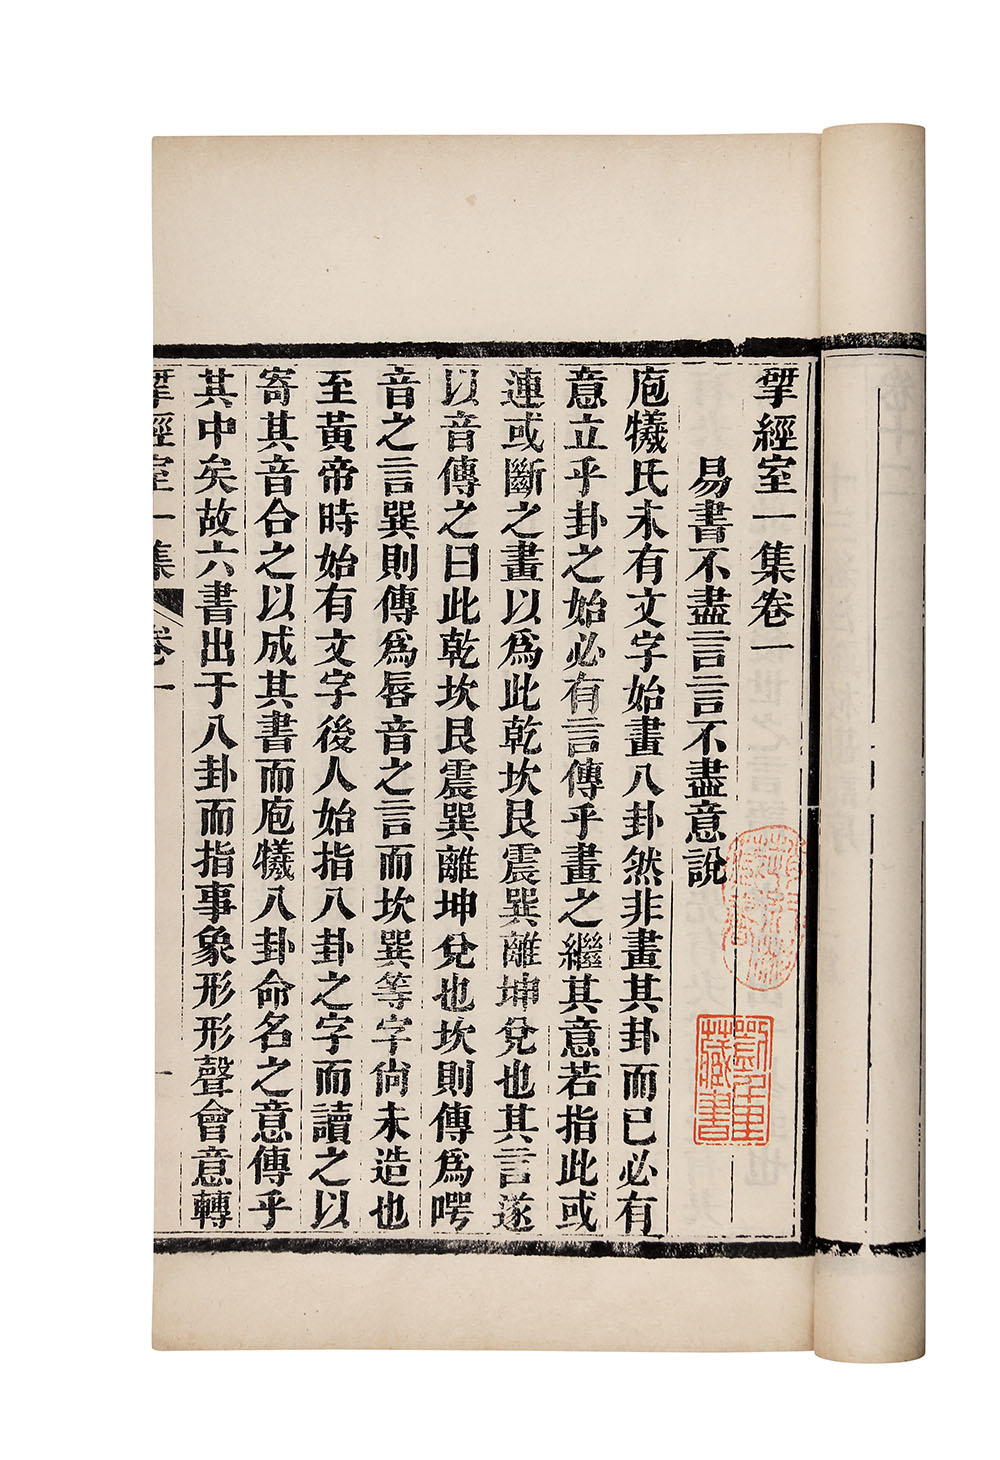 揅經室一集卷一
易書不盡言言不盡意說
庖犧氏未有文字始畫八卦然非畫其卦而已必有
意立乎卦之始必有言傳乎畫之繼其意若指此或
連或斷之畫以爲此乾坎艮震巽離坤兌也其言遂
以音傳之曰此乾坎艮震巽離坤兌也坎則傳爲㖾
音之言巽則傳爲唇音之言而坎巽等字尙未造也
至黃帝時始有文字後人始指八卦之字而讀之以
寄其音合之以成其書而庖犧八卦命名之意傳乎
其中矣故六書出于八卦而指事象形形聲會意轉
揅經室一集 卷一 一
藏書